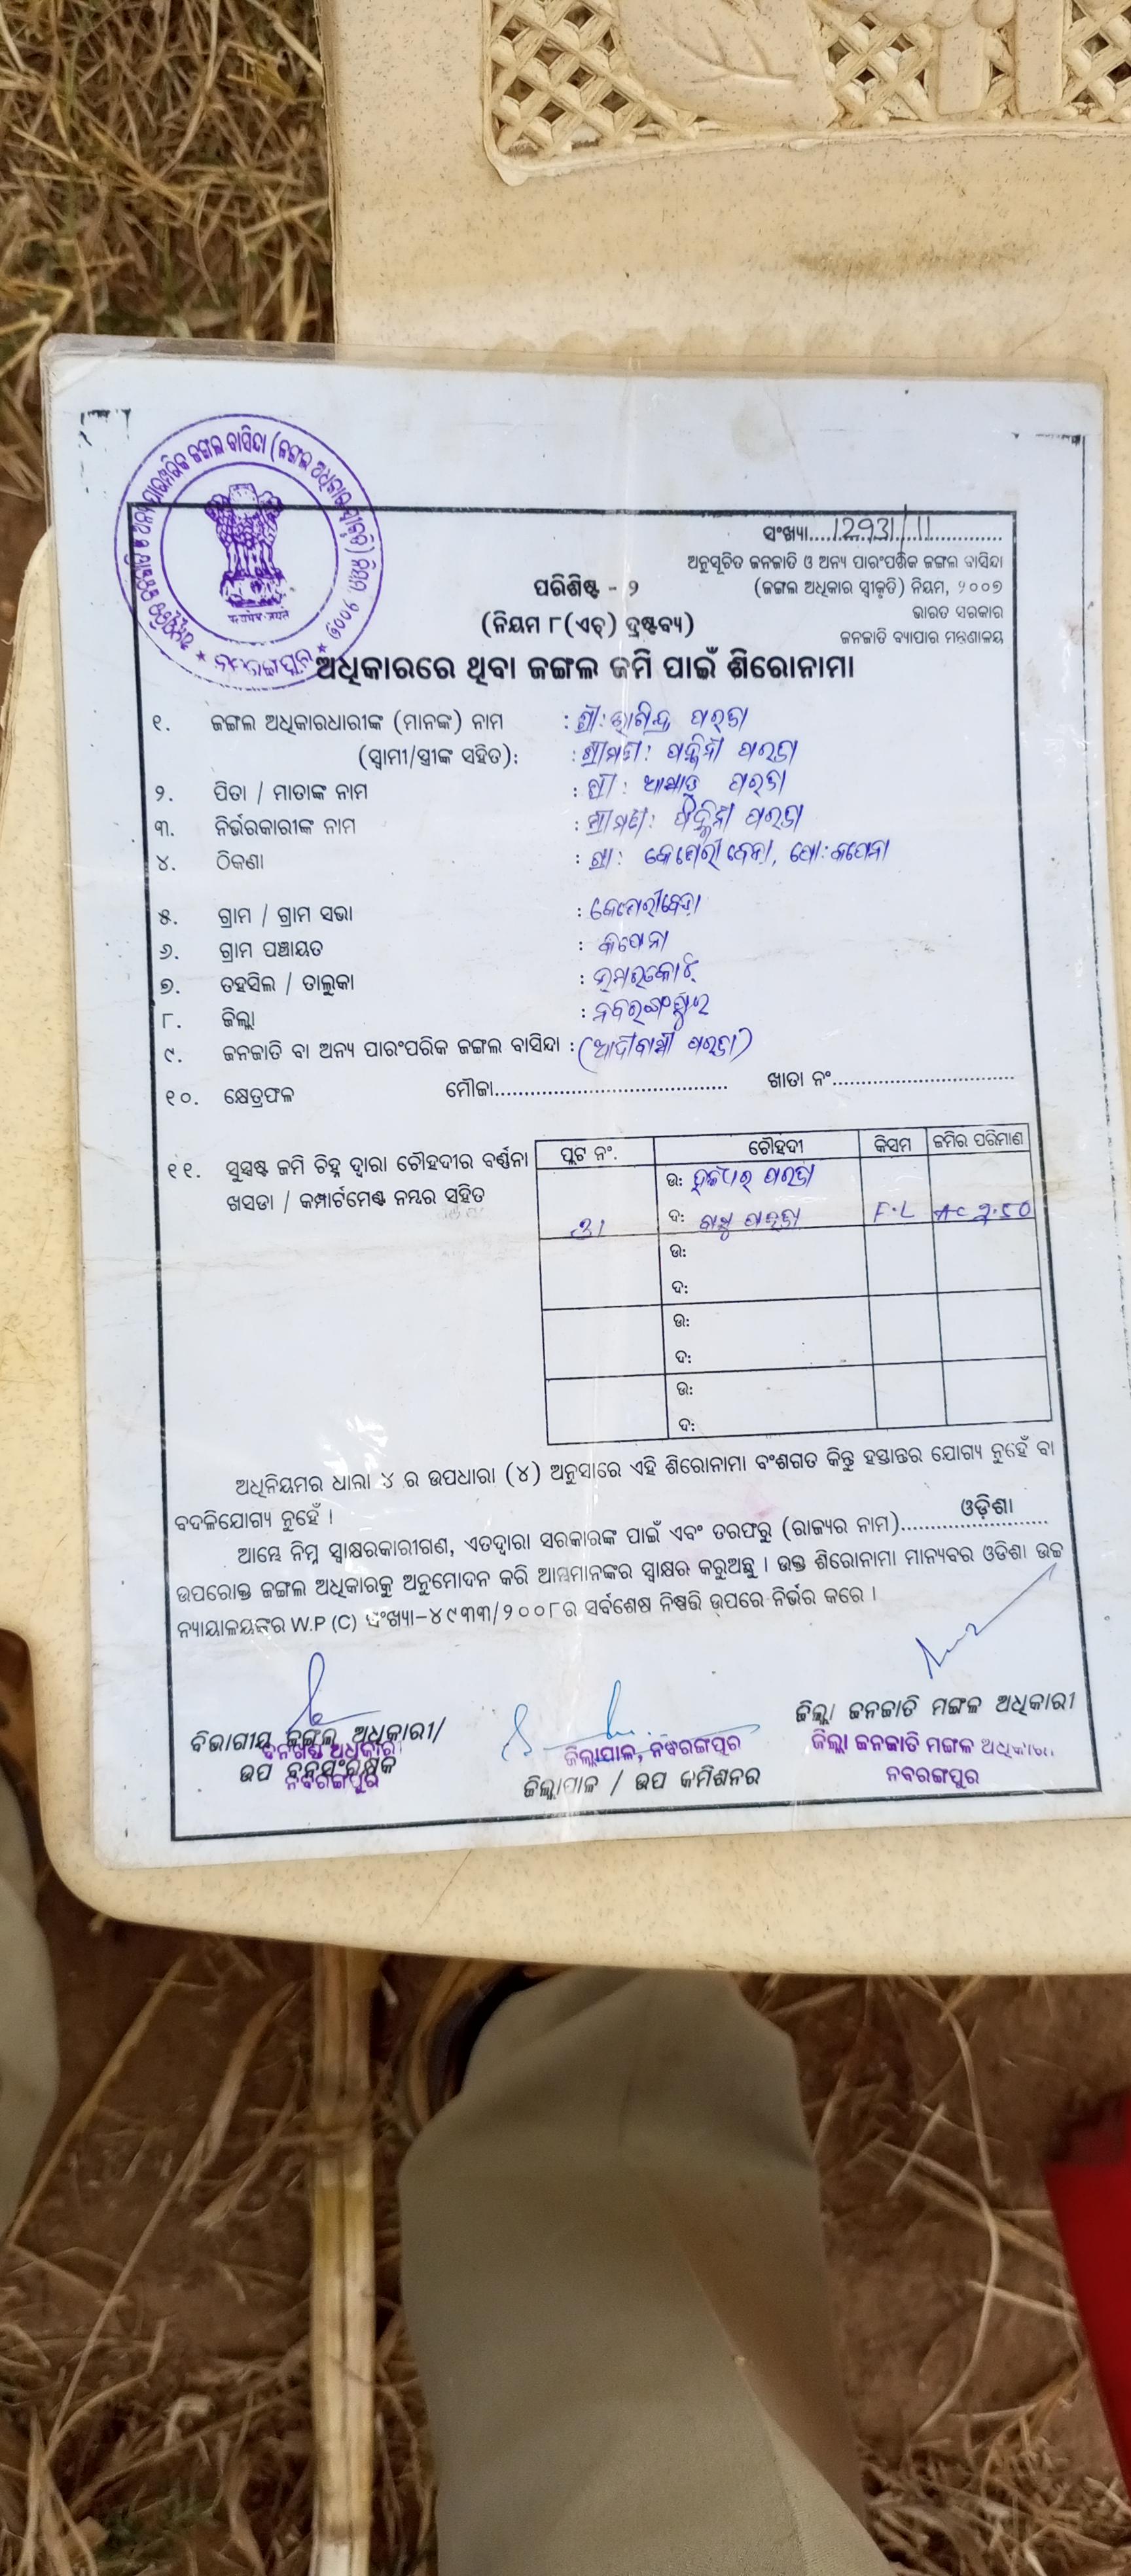 ସଂଖ୍ୟା....12931/11
ଅନୁସୂଚିତ ଜନଜାତି ଓ ଅନ୍ୟ ପାରଂପରିକ ଜଙ୍ଗଲ ବାସିନ୍ଦା
(ଜଙ୍ଗଲ ଅଧିକାର ସ୍ୱୀକୃତି) ନିୟମ, ୨୦୦୭
ଭାରତ ସରକାର
ଜନଜାତି ବ୍ୟାପାର ମନ୍ତ୍ରଣାଳୟ
ପରିଶିଷ୍ଟ - ୨
(ନିୟମ ୮(ଏଚ୍) ଦ୍ରଷ୍ଟବ୍ୟ)
ଅଧିକାରରେ ଥିବା ଜଙ୍ଗଲ ଜମି ପାଇଁ ଶିରୋନାମା
୧. ଜଙ୍ଗଲ ଅଧିକାରଧାରୀଙ୍କ (ମାନଙ୍କ) ନାମ : ଶ୍ରୀ: ପରଜା
(ସ୍ୱାମୀ/ସ୍ତ୍ରୀଙ୍କ ସହିତ): : ଶ୍ରୀମତୀ: ପରଜା
୨. ପିତା / ମାତାଙ୍କ ନାମ : ଶ୍ରୀ: ପରଜା
୩. ନିର୍ଭରକାରୀଙ୍କ ନାମ : ଶ୍ରୀମତୀ: ପରଜା
୪. ଠିକଣା : ଗ୍ରା:
୫. ଗ୍ରାମ / ଗ୍ରାମ ସଭା :
୬. ଗ୍ରାମ ପଞ୍ଚାୟତ :
୭. ତହସିଲ / ତାଲୁକା : ଉମରକୋଟ
୮. ଜିଲ୍ଲା : ନବରଙ୍ଗପୁର
୯. ଜନଜାତି ବା ଅନ୍ୟ ପାରଂପରିକ ଜଙ୍ଗଲ ବାସିନ୍ଦା : (ଆଦୀବାସୀ ପରଜା)
୧୦. କ୍ଷେତ୍ରଫଳ ମୌଜା........................................ ଖାତା ନଂ................................
୧୧. ସୁସ୍ପଷ୍ଟ ଜମି ଚିହ୍ନ ଦ୍ୱାରା ଚୌହଦୀର ବର୍ଣ୍ଣନା
ଖସଡା / କମ୍ପାର୍ଟମେଣ୍ଟ ନମ୍ବର ସହିତ
ପ୍ଲଟ ନଂ. ଚୌହଦୀ କିସମ ଜମିର ପରିମାଣ
ଉ: ପରଜା
ଦ: ପରଜା F.L
ଉ:
ଦ:
ଉ:
ଦ:
ଉ:
ଦ:
ଅଧିନିୟମର ଧାରା ୪ ର ଉପଧାରା (୪) ଅନୁସାରେ ଏହି ଶିରୋନାମା ବଂଶଗତ କିନ୍ତୁ ହସ୍ତାନ୍ତର ଯୋଗ୍ୟ ନୁହେଁ ବା
ବଦଳିଯୋଗ୍ୟ ନୁହେଁ ।
ଆମ୍ଭେ ନିମ୍ନ ସ୍ୱାକ୍ଷରକାରୀଗଣ, ଏତଦ୍ୱାରା ସରକାରଙ୍କ ପାଇଁ ଏବଂ ତରଫରୁ (ରାଜ୍ୟର ନାମ)....ଓଡ଼ିଶା....
ଉପରୋକ୍ତ ଜଙ୍ଗଲ ଅଧିକାରକୁ ଅନୁମୋଦନ କରି ଆମ୍ଭମାନଙ୍କର ସ୍ୱାକ୍ଷର କରୁଅଛୁ । ଉକ୍ତ ଶିରୋନାମା ମାନ୍ୟବର ଓଡିଶା ଉଚ୍ଚ
ନ୍ୟାୟାଳୟଙ୍କର W.P (C) ସଂଖ୍ୟା-୪୯୩୩/୨୦୦୮ର ସର୍ବଶେଷ ନିଷ୍ପତ୍ତି ଉପରେ ନିର୍ଭର କରେ ।
ବିଭାଗୀୟ ଜଙ୍ଗଲ ଅଧିକାରୀ/
ବନଖଣ୍ଡ ଅଧିକାରୀ
ଉପ ବନସଂରକ୍ଷକ
ନବରଙ୍ଗପୁର
ଜିଲ୍ଲାପାଳ, ନବରଙ୍ଗପୁର
ଜିଲ୍ଲାପାଳ / ଉପ କମିଶନର
ଜିଲ୍ଲା ଜନଜାତି ମଙ୍ଗଳ ଅଧିକାରୀ
ଜିଲ୍ଲା ଜନଜାତି ମଙ୍ଗଳ ଅଧିକାରୀ
ନବରଙ୍ଗପୁର